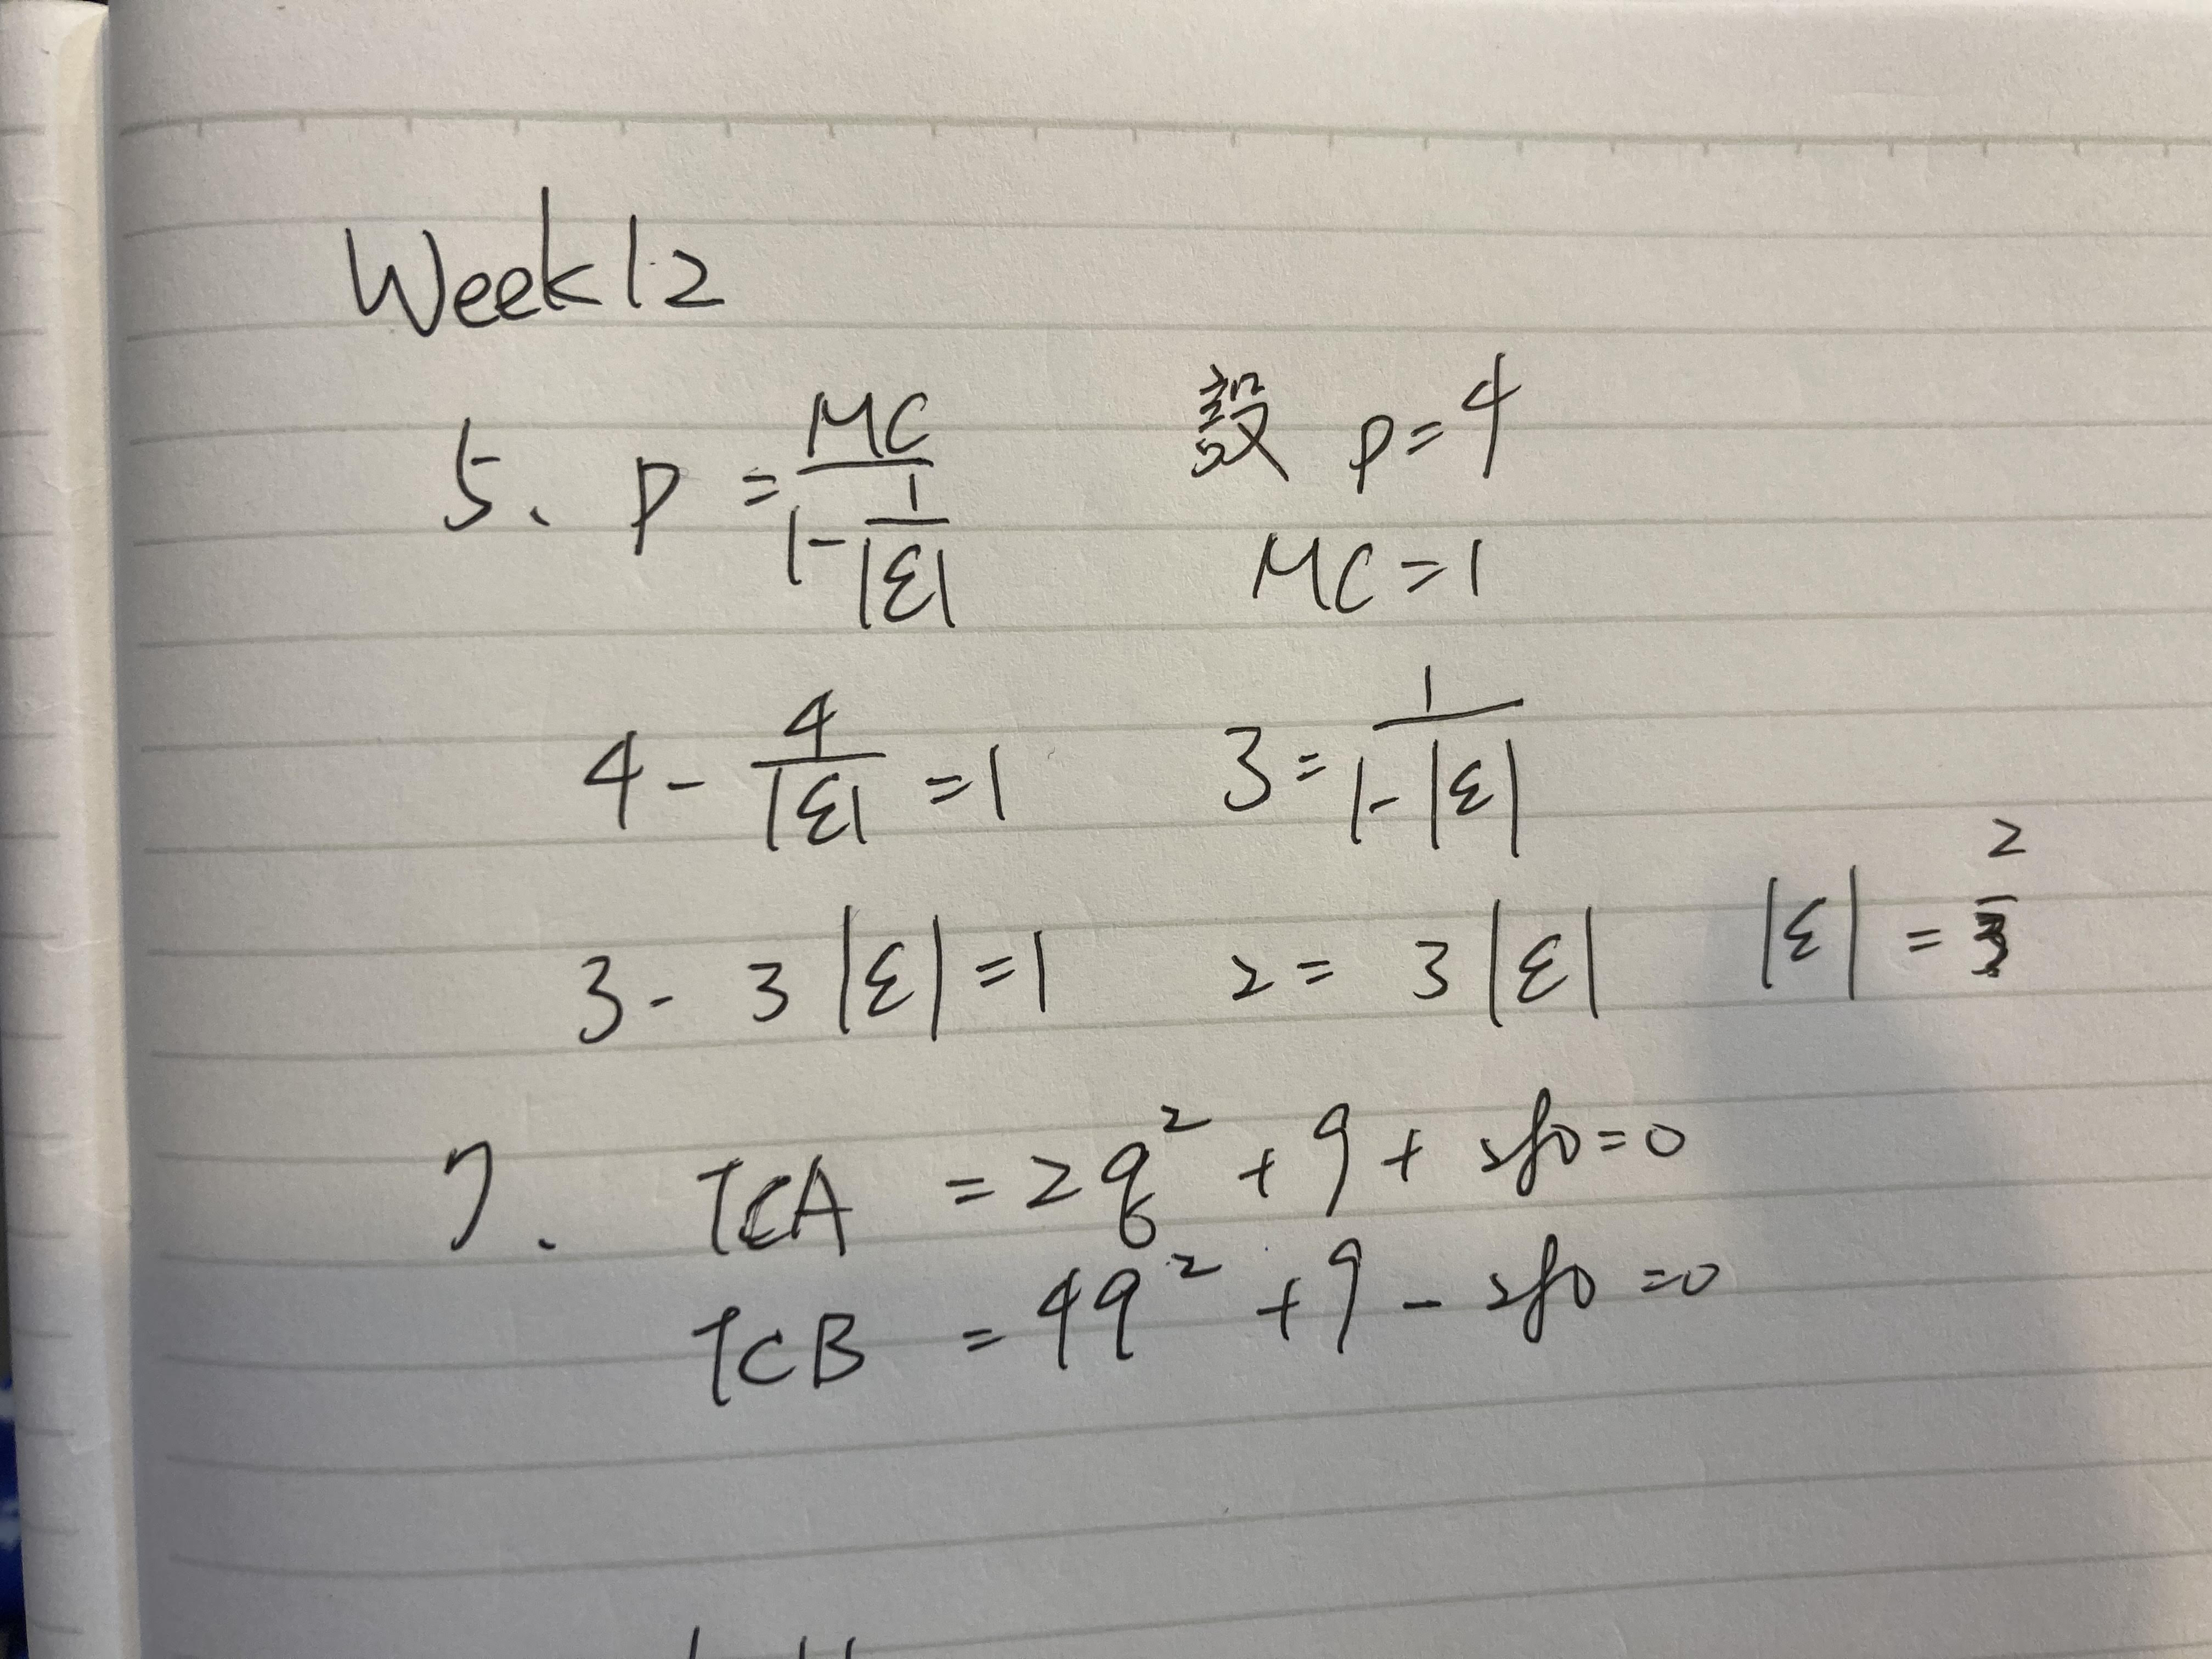 Week 12
5. P = MC / (1 - 1/|ε|) 設 P=4
MC=1
4 - 4/|ε| = 1 3 = 1/(1-|ε|)
3 - 3|ε| = 1 2 = 3|ε| |ε| = 2/3
7. TCA = 2q² + q + 250 = 0
TCB = 4q² + q - 250 = 0